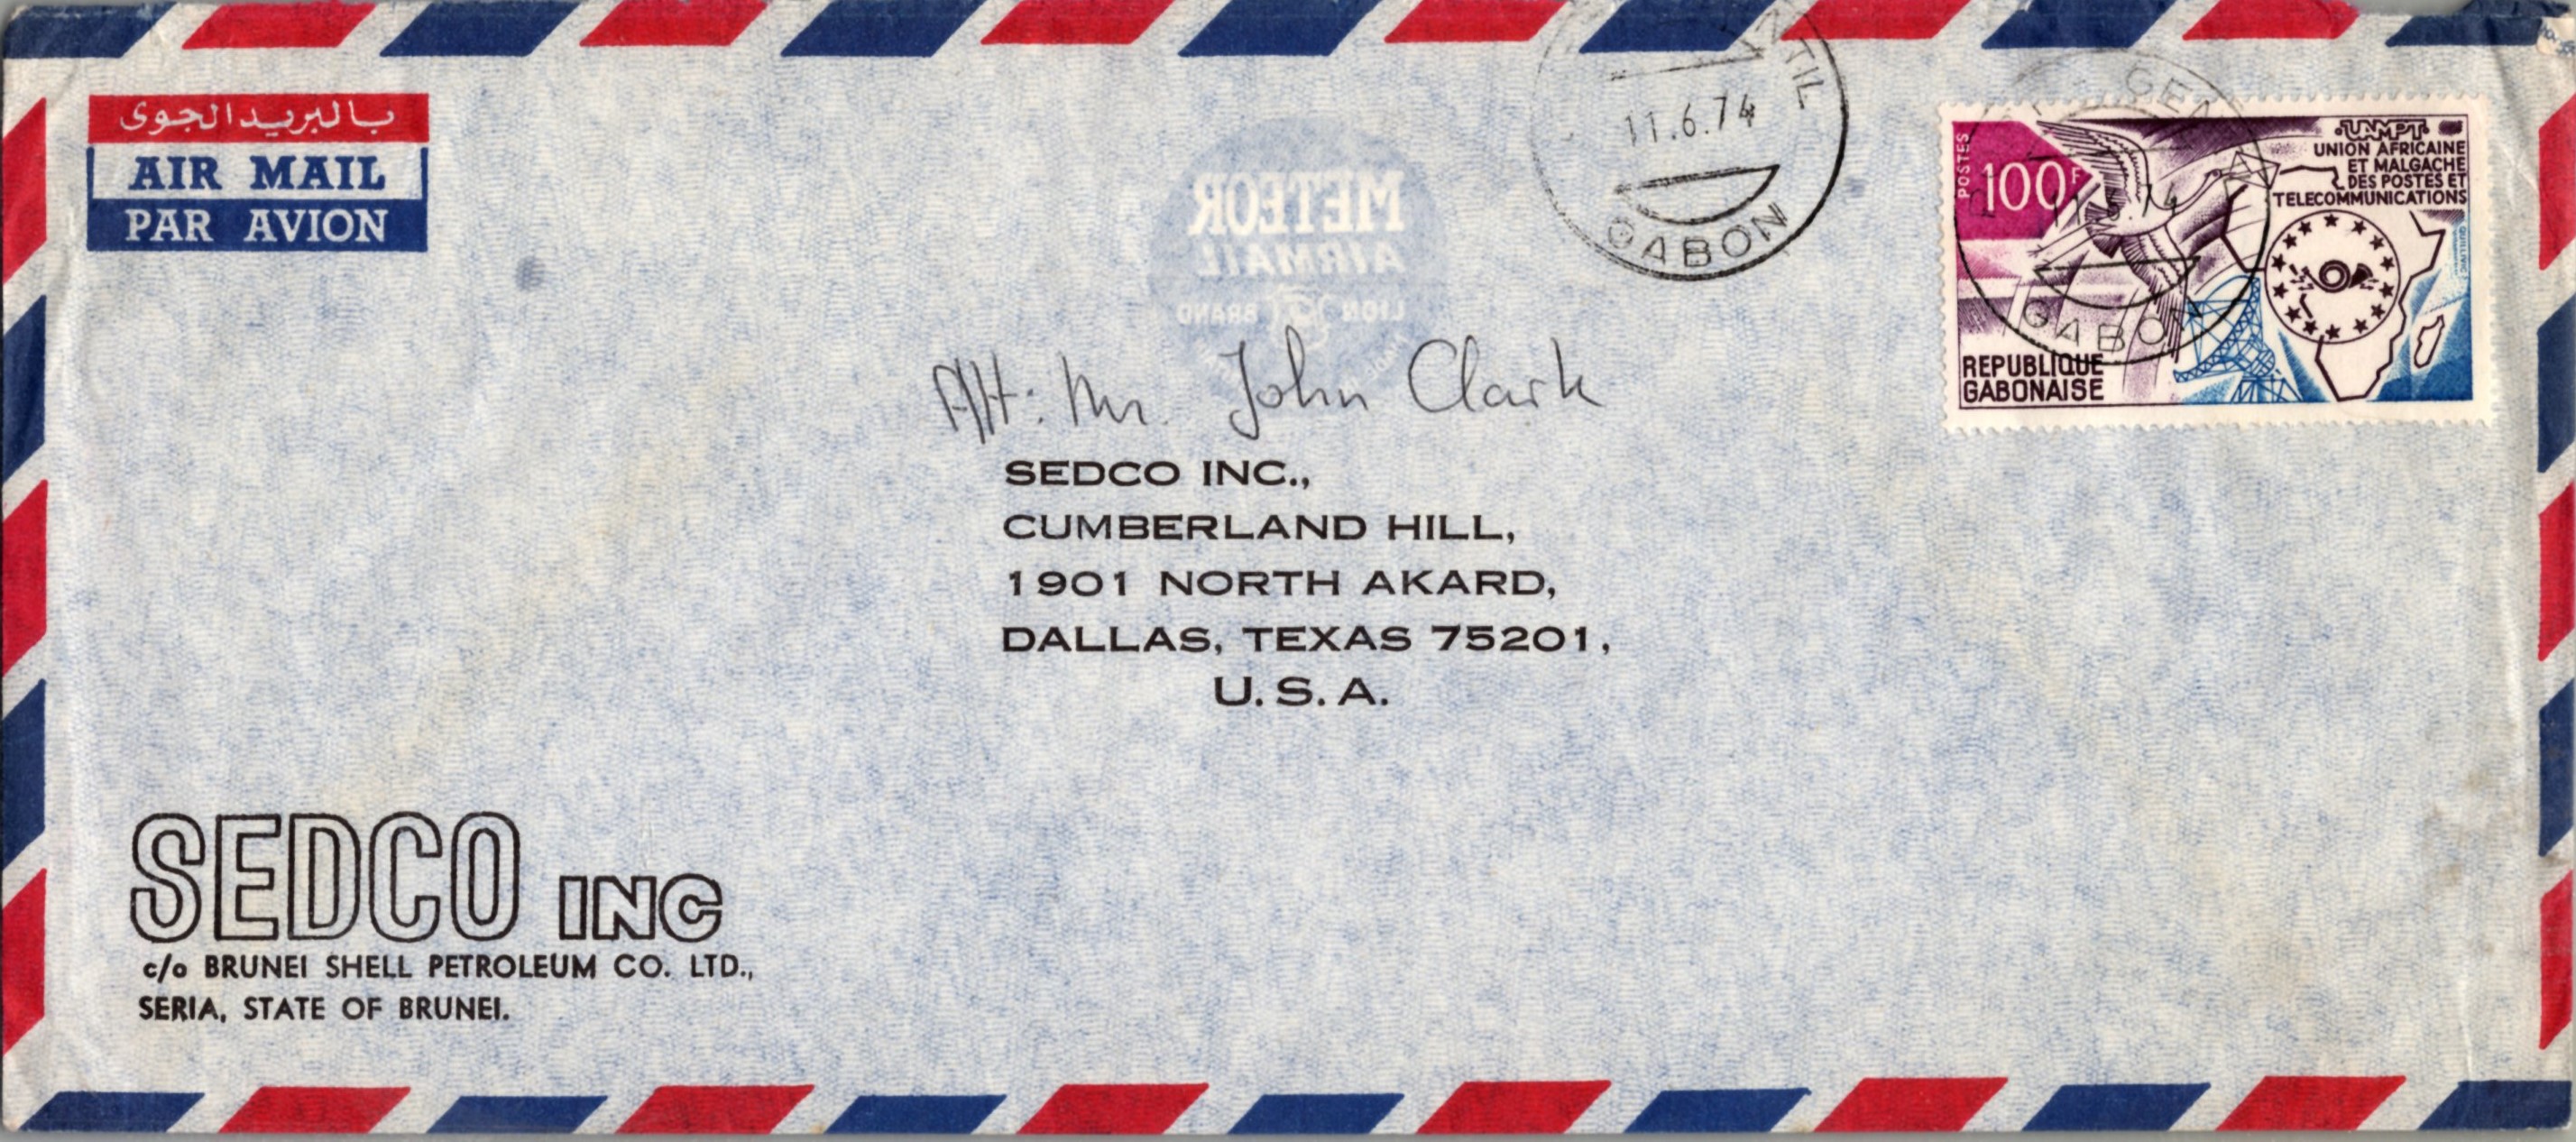 بالبريد الجوى
AIR MAIL
PAR AVION
METEOR
AIRMAIL
LION BRAND
11.6.74
GABON
GABON
POSTES
100F
UAMPT
UNION AFRICAINE
ET MALGACHE
DES POSTES ET
TELECOMMUNICATIONS
REPUBLIQUE
GABONAISE
Att: Mr. John Clark
SEDCO INC.,
CUMBERLAND HILL,
1901 NORTH AKARD,
DALLAS, TEXAS 75201,
U.S.A.
SEDCO INC
c/o BRUNEI SHELL PETROLEUM CO. LTD.,
SERIA, STATE OF BRUNEI.